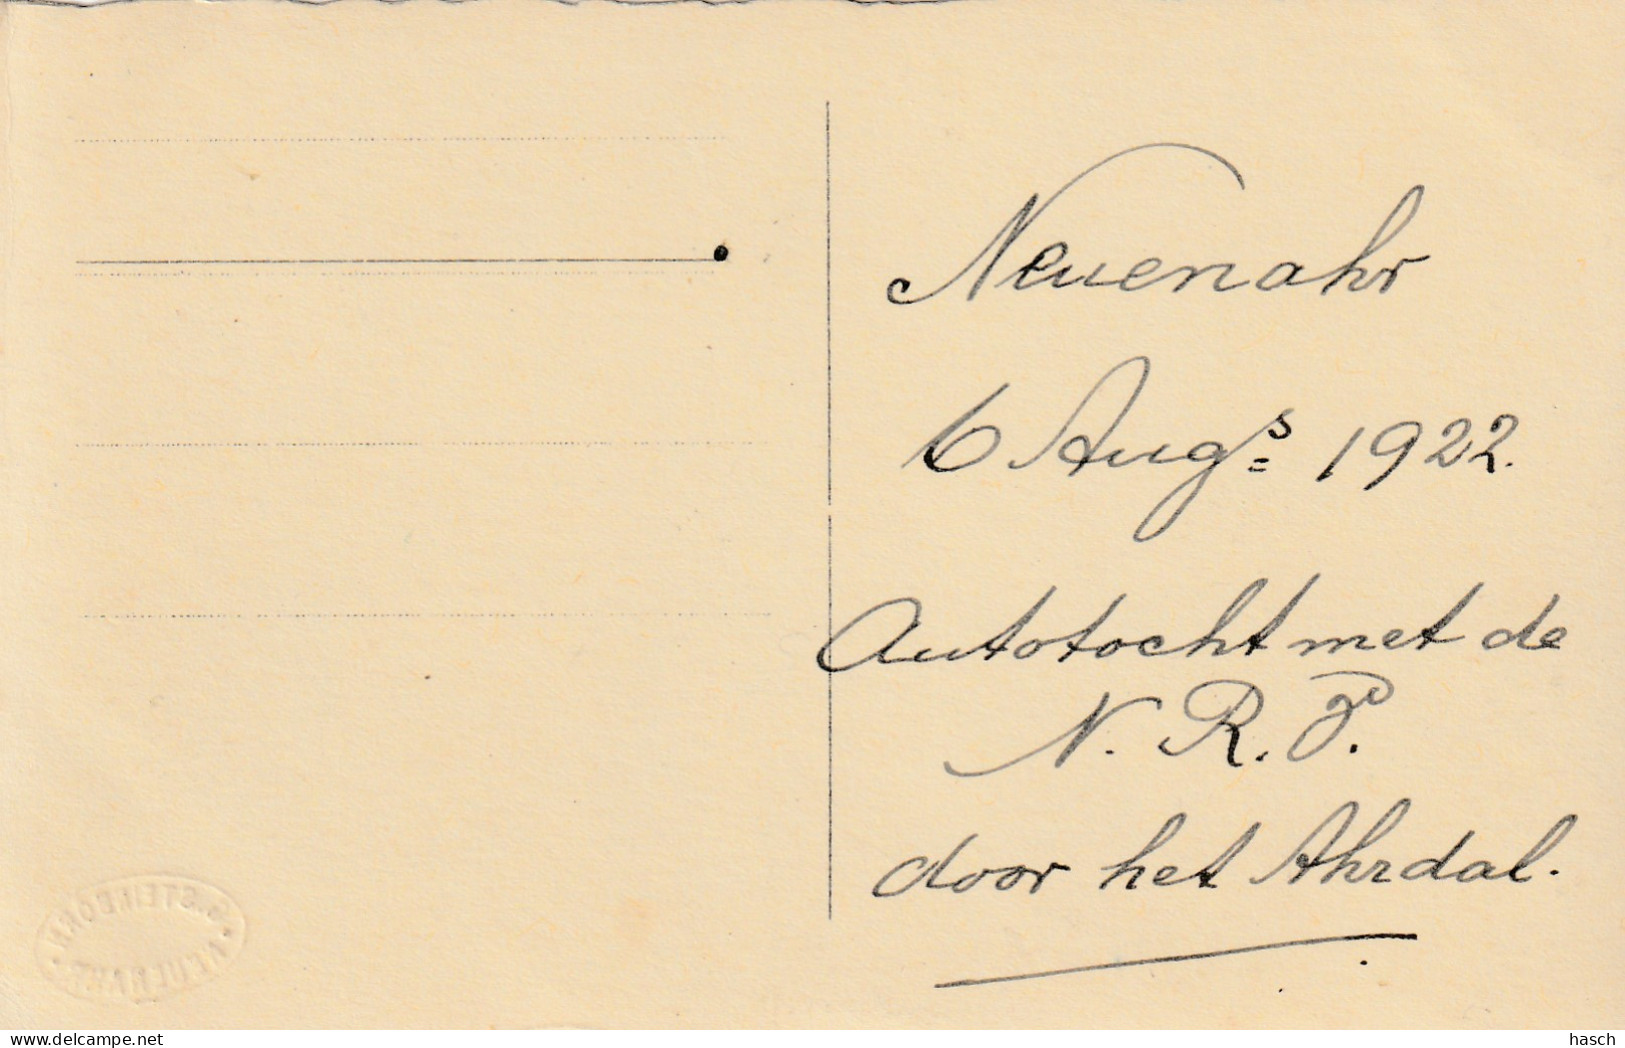 Neuenahr
6 Augs 1922.
Autotocht met de
N. R. P.
door het Ahrdal.
STEINBORN
NEUENAHR
the-bluestarr.delcampe.net
hasch